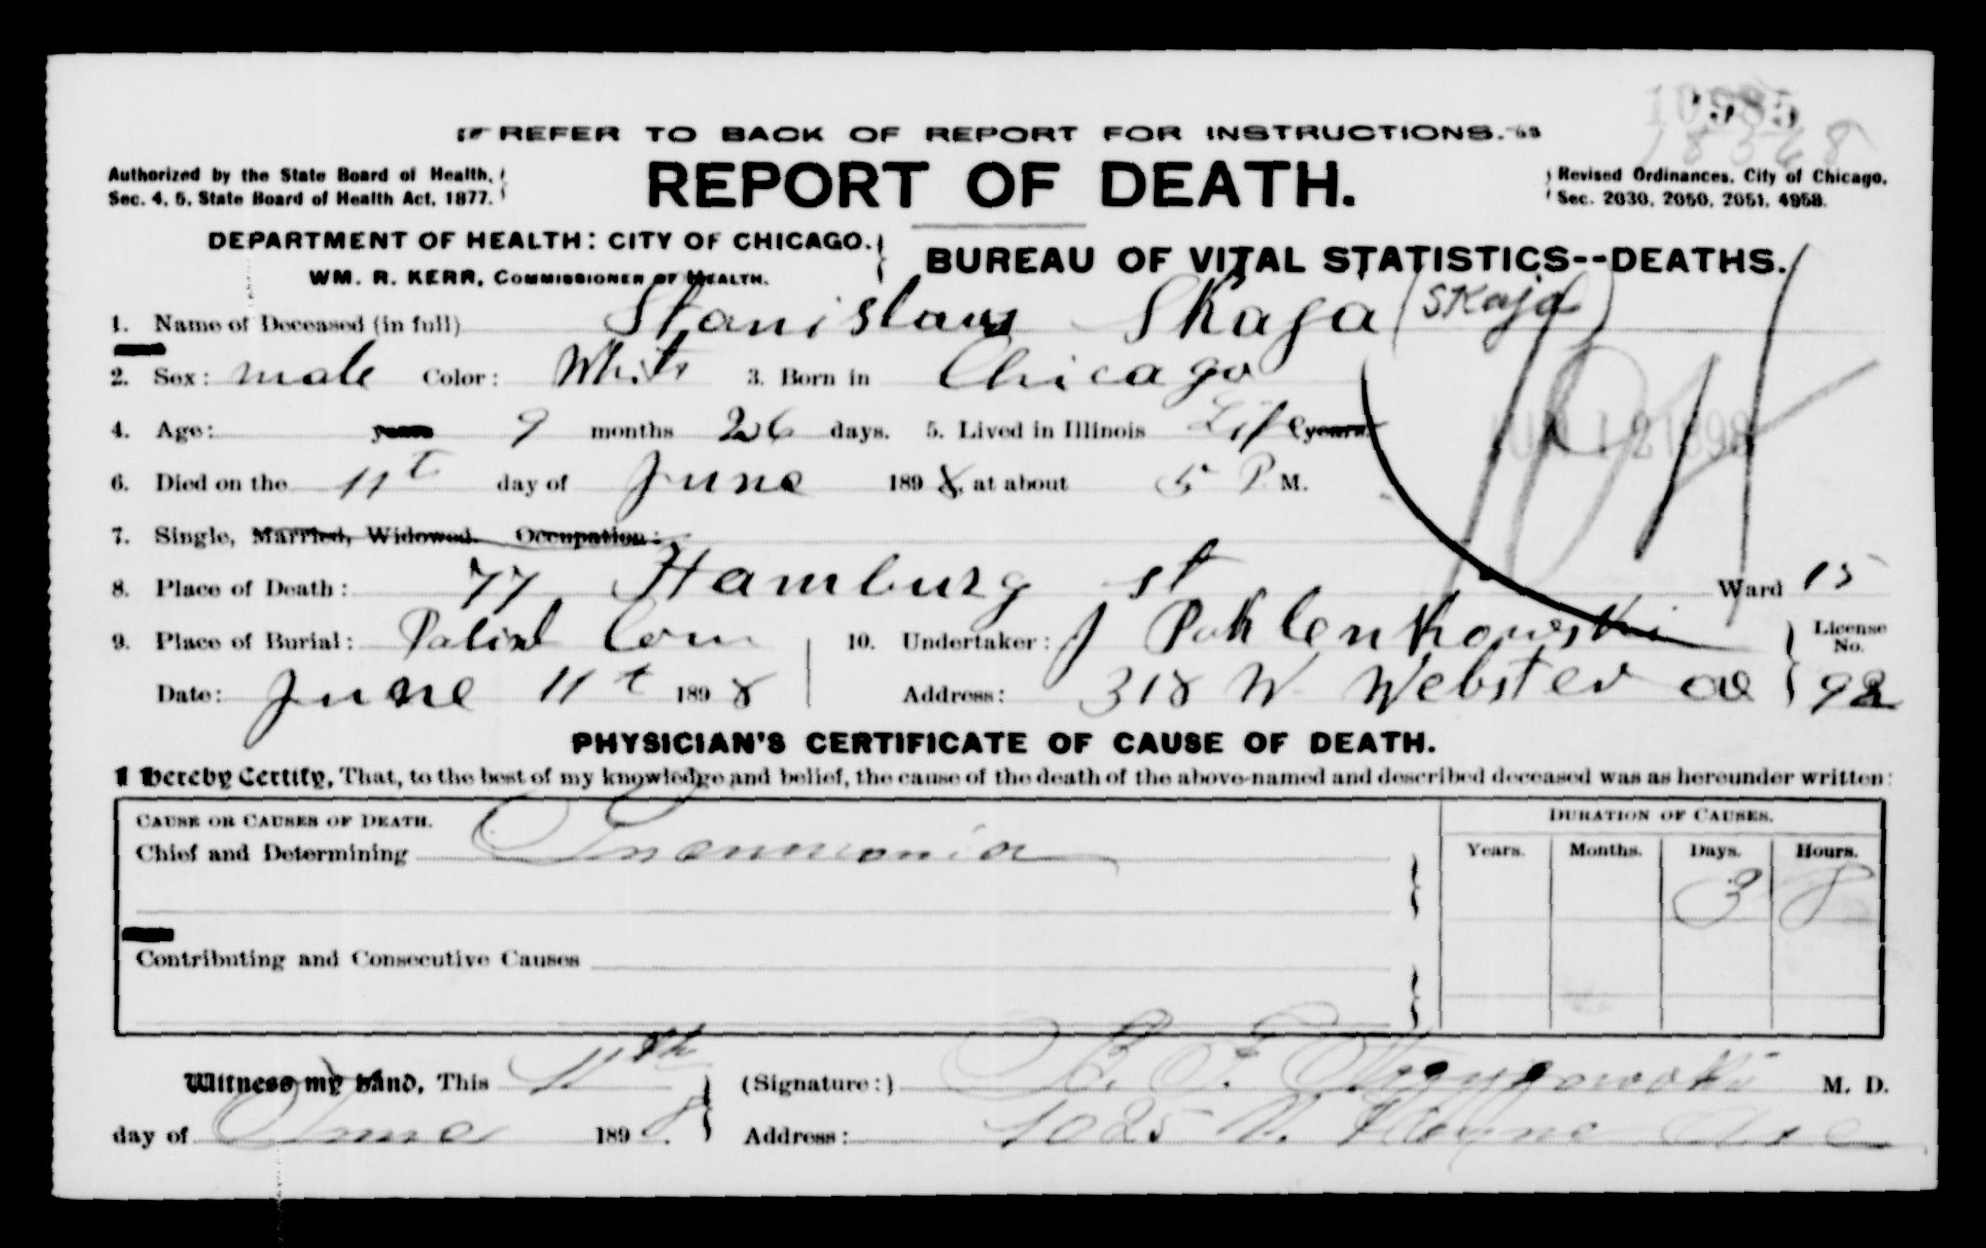 10985
18368
☞ REFER TO BACK OF REPORT FOR INSTRUCTIONS.
Authorized by the State Board of Health,
Sec. 4, 5, State Board of Health Act, 1877.
REPORT OF DEATH.
Revised Ordinances, City of Chicago,
Sec. 2030, 2050, 2051, 4958.
DEPARTMENT OF HEALTH: CITY OF CHICAGO.
WM. R. KERR, COMMISSIONER OF HEALTH.
BUREAU OF VITAL STATISTICS--DEATHS.
1. Name of Deceased (in full) Stanislaus Skaja (Skaja)
2. Sex: male Color: White 3. Born in Chicago
4. Age: years 9 months 26 days. 5. Lived in Illinois Life years.
JUN 12 1898
6. Died on the 11t day of June 1898, at about 5 P M.
7. Single, Married, Widowed. Occupation:
8. Place of Death: 77 Hamburg st Ward 15
9. Place of Burial: Polish Cem 10. Undertaker: J Pohlenkowski License No.
Date: June 11t 1898 Address: 318 W Webster av 92
PHYSICIAN'S CERTIFICATE OF CAUSE OF DEATH.
I Hereby Certify, That, to the best of my knowledge and belief, the cause of the death of the above-named and described deceased was as hereunder written:
CAUSE OR CAUSES OF DEATH. DURATION OF CAUSES.
Chief and Determining Pneumonia Years. Months. Days. Hours.
3 8
Contributing and Consecutive Causes
Witness my hand, This 11th (Signature:) M. D.
day of June 1898. Address: 1025 N. Ave